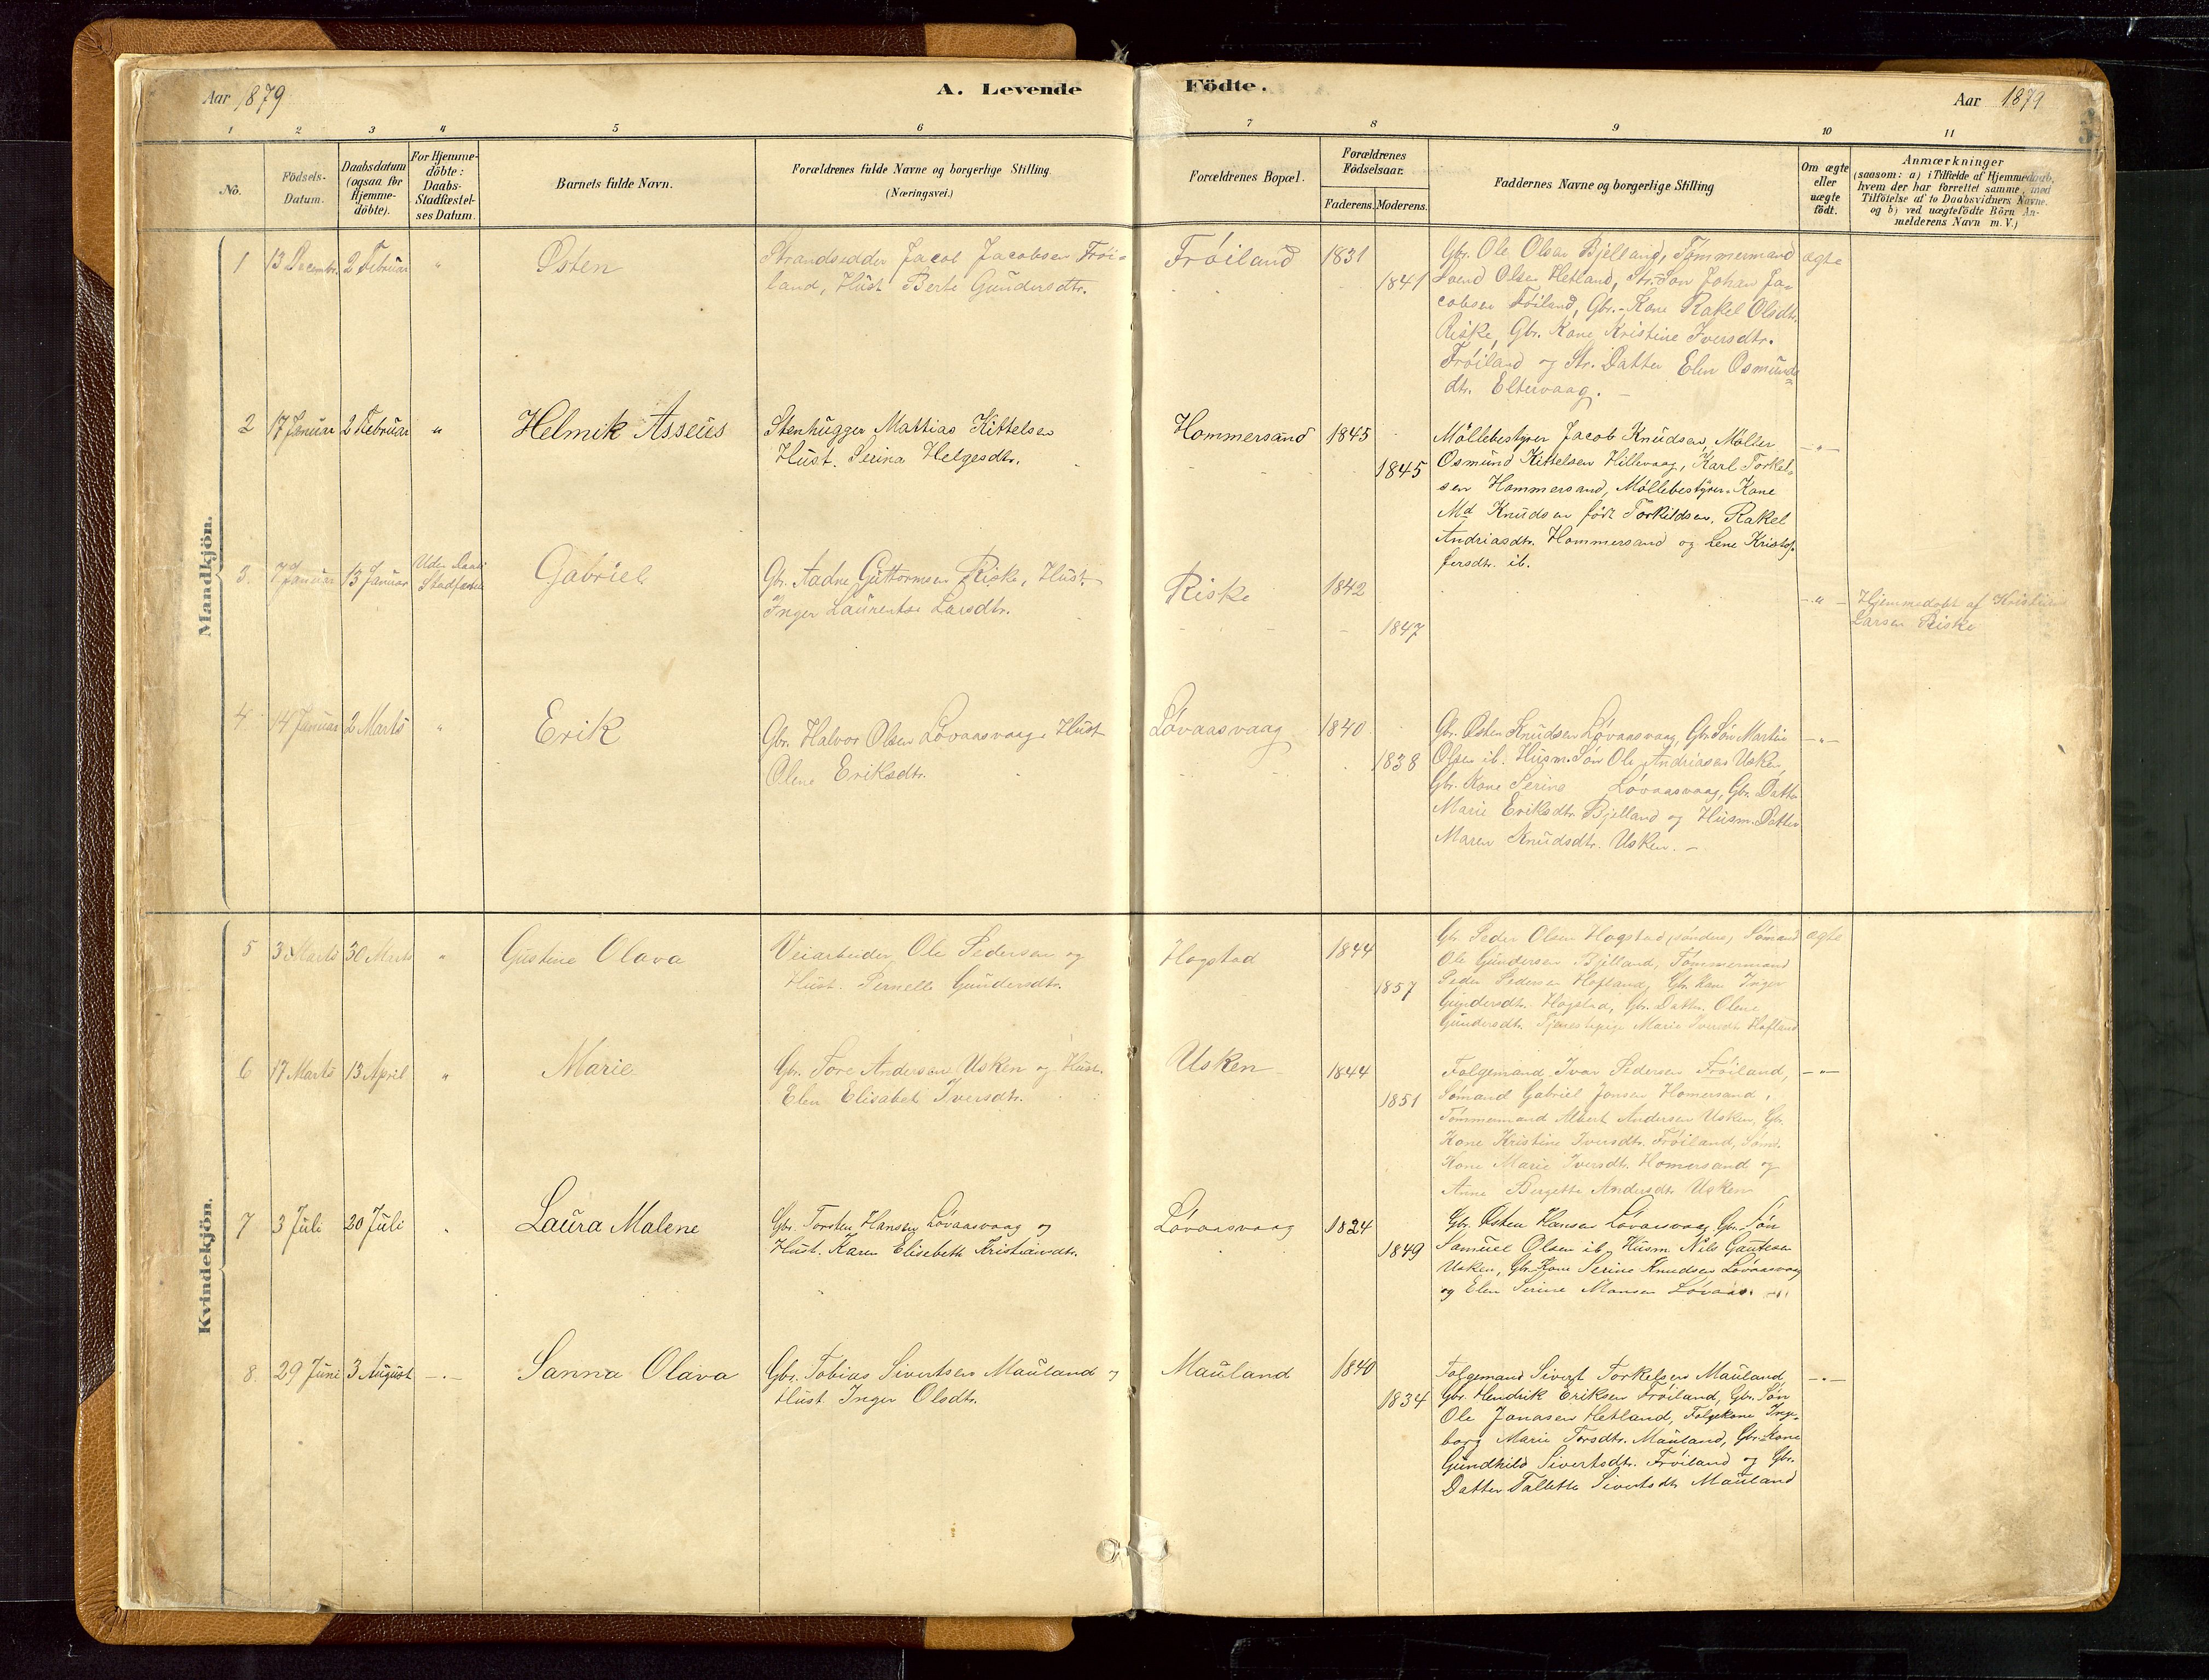 Aar 1879
A. Levende
Födte.
Aar 1879
1 2 3 4 5 6 7 8 9 10 11
No.
Födsels-
Datum.
Daabsdatum
(ogsaa for
Hjemme-
döbte).
For Hjemme-
döbte:
Daabs-
Stadfæstel-
ses Datum.
Barnets fulde Navn.
Forældrenes fulde Navne og borgerlige Stilling.
(Næringsvei.)
Forældrenes Bopæl.
Forældrenes
Födselsaar.
Faderens. Moderens.
Faddernes Navne og borgerlige Stilling
Om ægte
eller
uægte
födt.
Anmærkninger
(saasom: a) i Tilfælde af Hjemmedaab,
hvem der har forrettet samme, med
Tilföielse af to Daabsvidners Navne.
og b) ved uægtefödte Börn An-
melderens Navn m.V.)
Mandkjön.
1 13 Decembr. 2 Februar " Østen
Strandsidder Jacob Jacobsen Frøi-
land, Hust. Berte Gundersdtr.
Frøiland 1831
1841
Gbr. Ole Olsen Bjelland, Tømmermand
Svend Olsen Hetland, Str. Søn Johan Ja-
cobsen Frøiland, Gbr.-Kone Rakel Olsdtr.
Riske, Gbr. Kone Kristine Iversdtr.
Frøiland og Str. Datter Elen Osmunds
dtr. Eltervaag. -
ægte
2 17 Januar 2 Februar " Helmik Asseus
Stenhugger Mattias Kittelsen
Hust. Serina Helgesdtr.
Hommersand 1845
1845
Møllebestyrer Jacob Knudsen, Møller
Osmund Kittelsen Hillevaag, Karl Torkel-
sen Hammersand, Møllebestyrer-Kone
Md Knudsen født Torkildsen, Rakel
Andriasdtr. Hommersand og Lene Kristof-
fersdtr. ib.
- " -
3. 7 Januar 13 Januar
Uden Daabs
Stadfæstelse
Gabriel
Gbr. Aadne Guttormsen Riske, Hust.
Inger Laurentse Larsdtr.
Riske 1842
1847
- " -
Hjemmedøbt af Kristian
Larsen Riske
4 14 Januar 2 Marts " Erik
Gbr. Halvor Olsen Løvaasvaag, Hust
Olene Eriksdtr.
Løvaasvaag 1840
1838
Gbr. Østen Knudsen Løvaasvaag, Gbr Søn Martin
Olsen ib. Husm. Søn Ole Andriasen Usken,
Gbr. Kone Serine Løvaasvaag, Gbr. Datter
Marie Eriksdtr. Bjelland og Husm. Datter
Maren Knudsdtr. Usken. -
- " -
Kvindekjön.
5 3 Marts 30 Marts " Gustine Olava
Veiarbeider Ole Pedersen og
Hust. Pernelle Gundersdtr.
Hogstad 1844
1857
Gbr. Peder Olsen Hogstad, søndre, Sømand
Ole Gundersen Bjelland, Tømmermand
Peder Pedersen Hofland, Gbr. Kone Inger
Gundersdtr. Hogstad, Gbr. Datter Olene
Gundersdtr. Tjenestepige Marie Iversdtr. Hofland
ægte
6 17 Marts 13 April " Marie
Gbr. Tore Andersen Usken og Hust.
Elen Elisabet Iversdtr.
Usken 1844
1851
Følgemand Ivar Pedersen Frøiland,
Sømand Gabriel Jansen Homersand,
Tømmermand Albert Andersen Usken, Gbr.
Kone Kristine Iversdtr. Frøiland, Søm.
Kone Marie Iversdtr. Homersand og
Anne Bergette Andersdtr Usken
- " -
7 3 Juli 20 Juli " Laura Malene
Gbr. Torsten Hansen Løvaasvaag og
Hust. Karen Elisebeth Kristiansdtr.
Løvaasvaag 1824
1849
Gbr. Østen Hansen Løvaasvaag, Gbr. Søn
Samuel Olsen ib, Husm. Nils Gautesen
Usken, Gbr. Kone Serine Knudsen Løvaasvaag
og Elen Serine Monsen Løvaas.
8. 29 Juni 3 August - " - Sanna Olava
Gbr. Tobias Sivertsen Mauland og
Hust Inger Olsdtr.
Mauland 1840
1834
Følgemand Sivert Torkelsen Mauland
Gbr. Hendrik Eriksen Frøiland, Gbr. Søn
Ole Jonasen Hetland, Følgekone Inge-
borg Marie Torsdtr. Mauland, Gbr. Kone
Gundhild Sivertsdtr. Frøiland og Gbr.
Datter Tallette Sivertsdtr Mauland
- " -